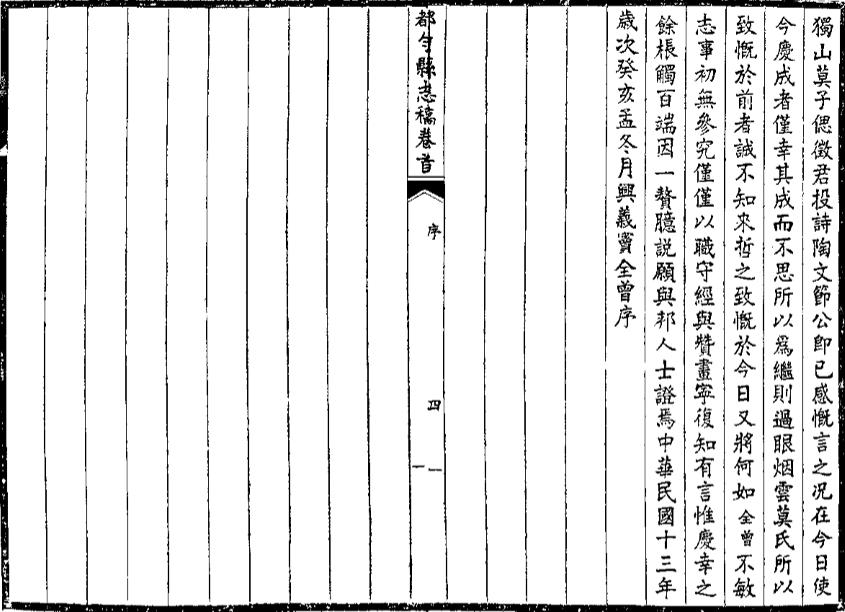 獨山莫子偲徵君投詩陶文節公即已感慨言之况在今日使
今慶成者僅幸其成而不思所以爲繼則過眼烟雲莫氏所以
致慨於前者誠不知來哲之致慨於今日又將何如全曾不敏
志事初無參究僅僅以職守經與贊畫寧復知有言惟慶幸之
餘棖觸百端因一贅臆説願與邦人士證焉中華民國十三年
歲次癸亥孟冬月興義竇全曾序
都匀縣志稿卷首
序
四
一一